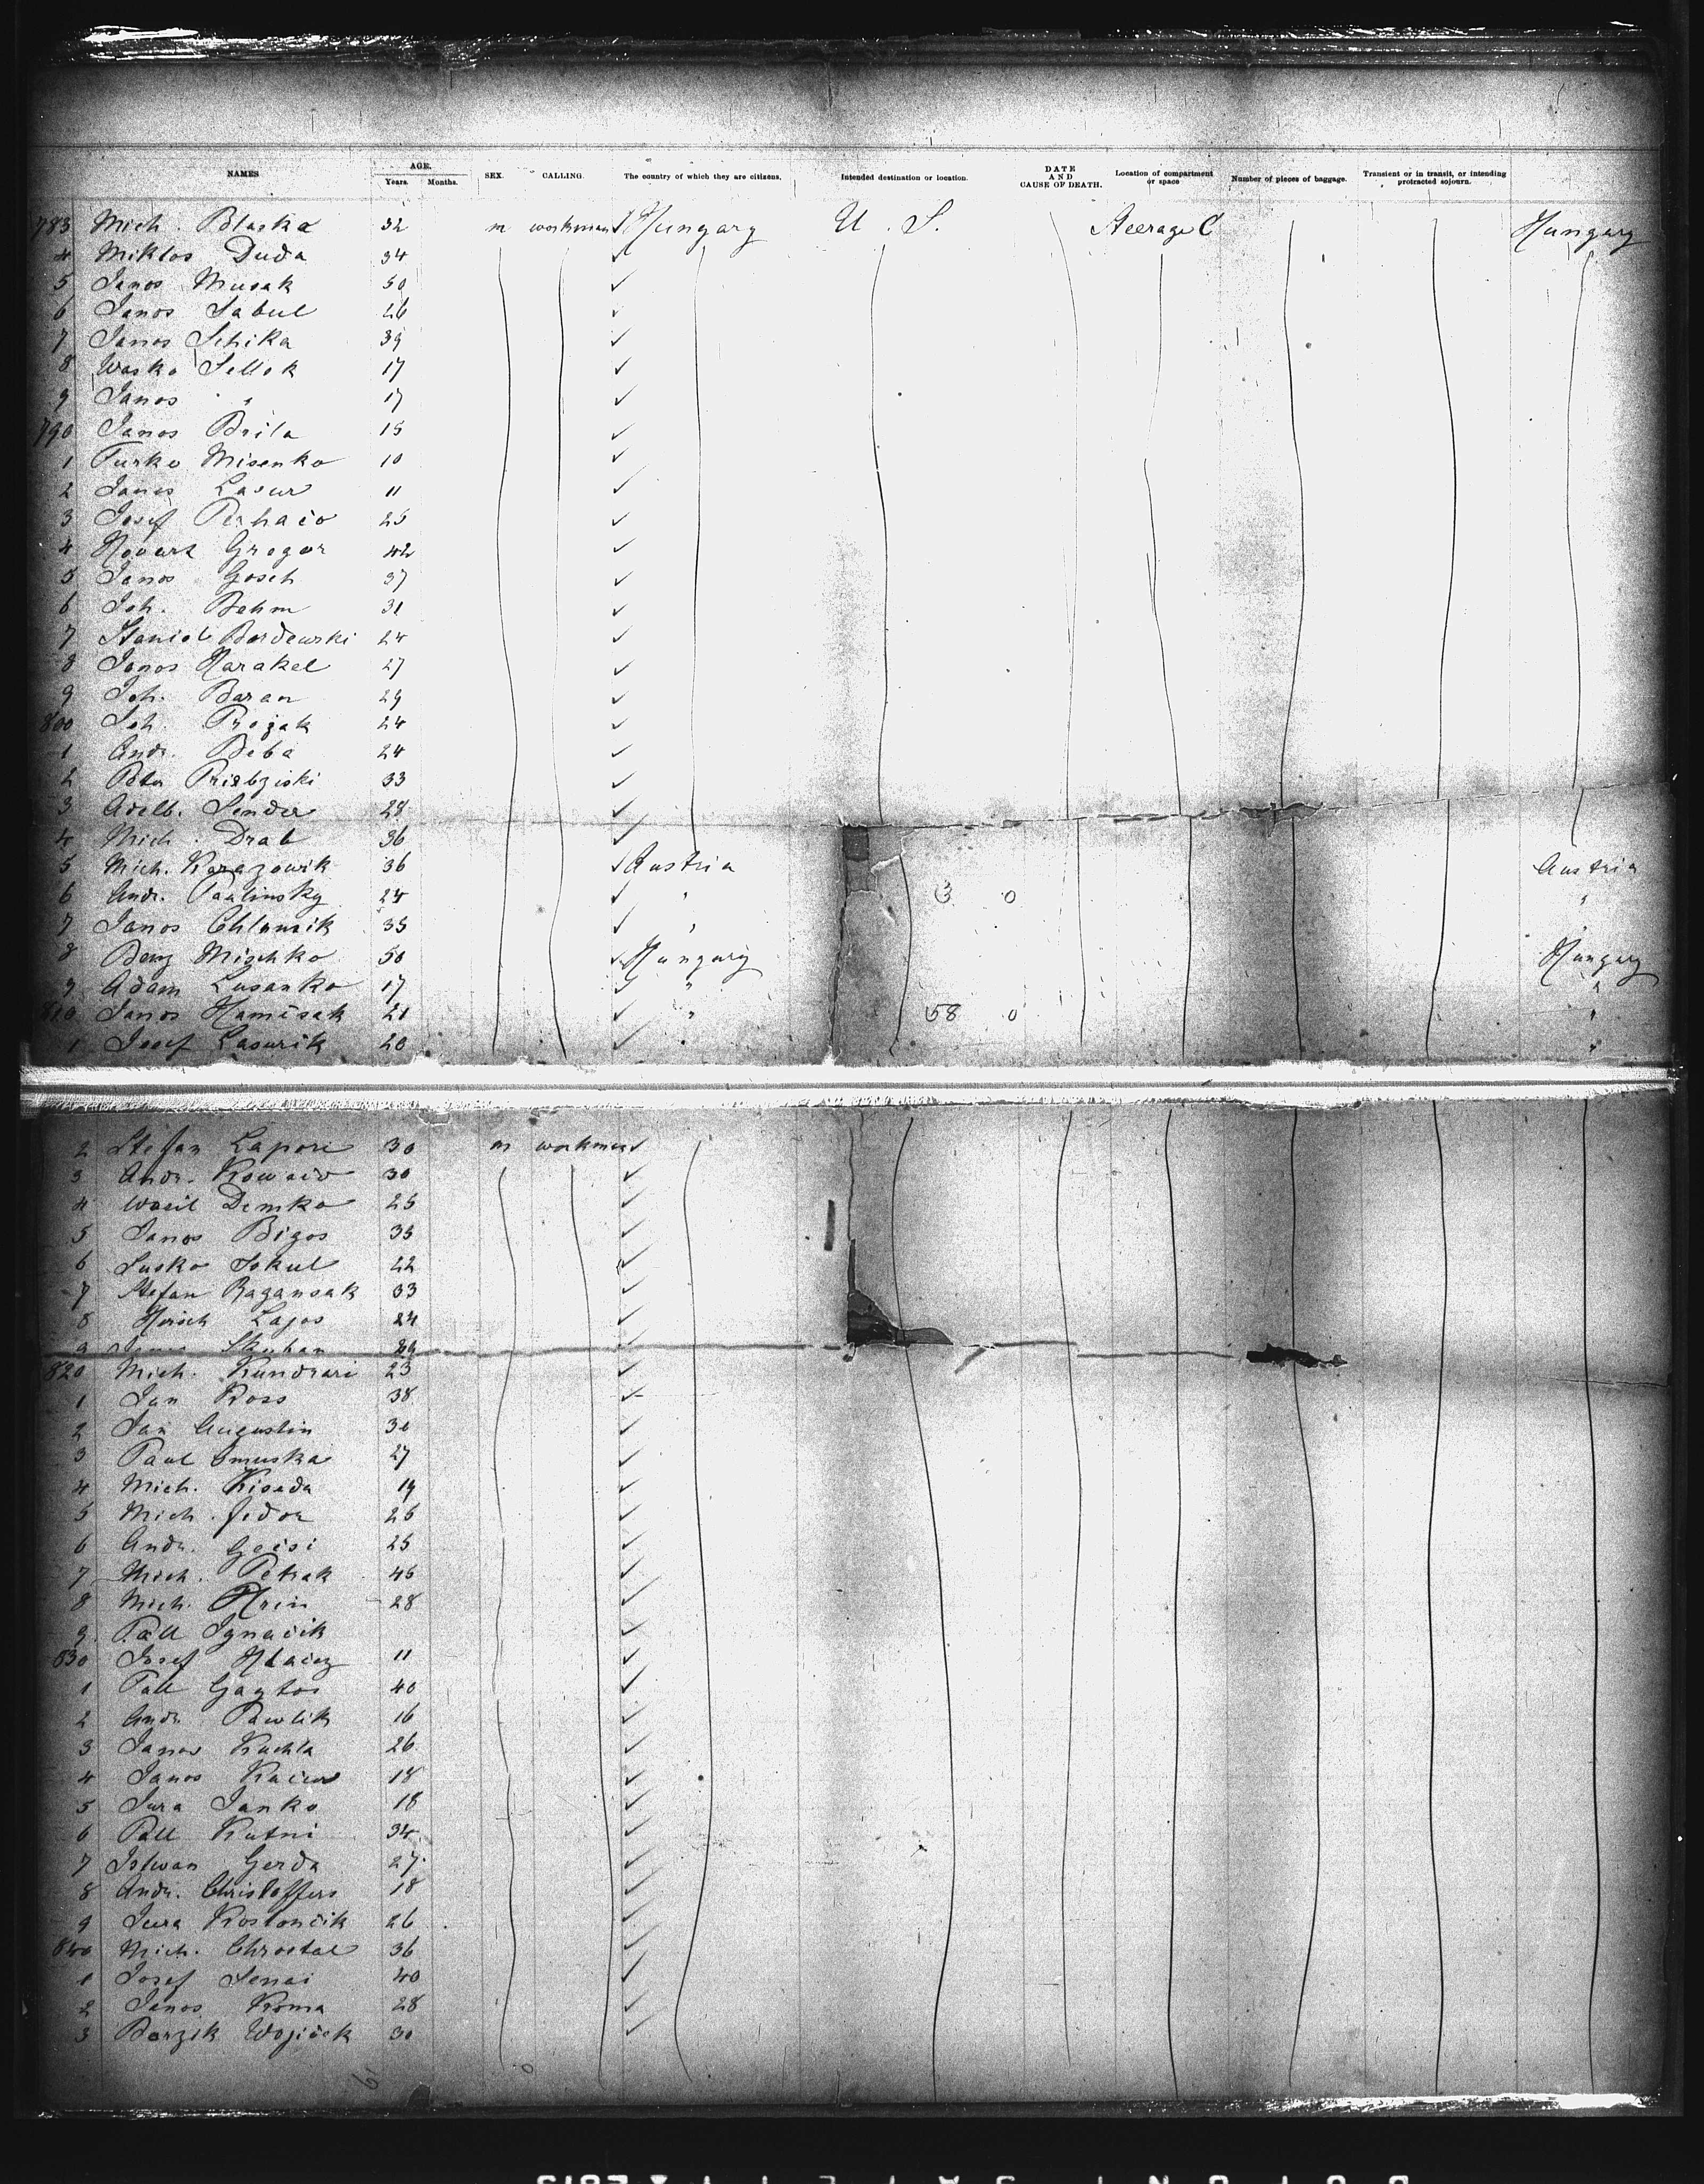 NAMES AGE. Years. Months. SEX. CALLING. The country of which they are citizens. Intended destination or location. DATE AND CAUSE OF DEATH. Location of compartment or space Number of pieces of baggage. Transient or in transit, or intending protracted sojourn.
783 Mich. Blaska 32 m workman Hungary U. S. Steerage C Hungary
4 Miklos Duda 34
5 Janos Musak 50
6 Janos Sabul 26
7 Janos Schika 39
8 Wasko Sellok 17
9 Janos " 17
790 Janos Brila 15
1 Turko Misenko 10
2 Janos Lasur 11
3 Josef Perhaco 25
4 Gregor 42
5 Janos Gosch 37
6 Joh. Bohm 31
7 Bordewski 24
8 Janos Harakel 27
9 Joh. Baran 29
800 Joh. Prozak 24
1 Andr. Beba 24
2 Peter 33
3 Adelb. Sender 28
4 Mich. Drab 36
5 Mich. Karazowik 36 Austria Austria
6 Andr. Paulinsky 24 " 3 0 "
7 Janos 35 " "
8 Mischko 50 Hungary Hungary
9 Adam Lusanko 17 " "
810 Janos Hamisak 21 " 58 0 "
1 Josef Lasurik 20 " "
2 Stefan Lapore 30 m workman
3 Andr. 30
4 Wasil Demko 25
5 Janos Bigos 35
6 Lusko Sokul 22
7 Stefan Ragansak 33
8 Hersch Lajos 24
9
820 Mich. Kundrari 23
1 Jan Ross 38
2 Jan Augustin 30
3 Paul Smuska 27
4 Mich. Kiseda 19
5 Mich. Fedor 26
6 Andr. Geisi 25
7 Mich. Petrak 45
8 Mich. Hrin 28
9 Pall Ignacik
830 Josef 11
1 Pall Gaytos 40
2 Andr. Pawlik 16
3 Janos Kuchta 26
4 Janos 18
5 Jura Janko 18
6 Pall Kutni 34
7 Istwan Gerda 27
8 Andr. Christoffers 18
9 Jura Kostoncik 26
840 Mich. Chrostal 36
1 Josef Senai 40
2 Janos Kroma 28
3 Borzik Wojicek 30